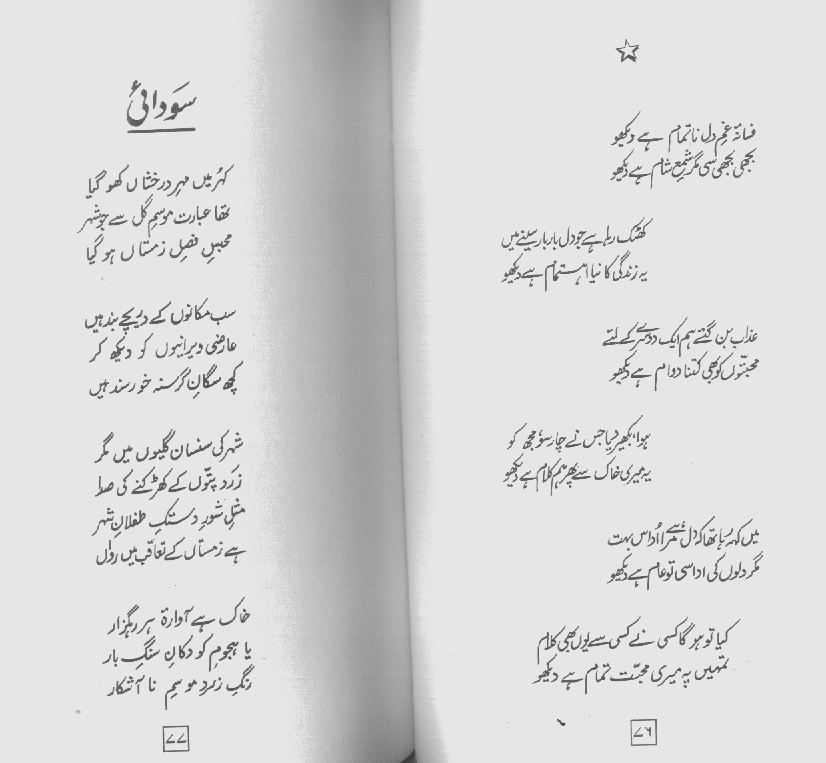 فسانۂ غمِ دل ناتمام ہے دیکھو
بجھی بجھی سی مگر شمعِ شام ہے دیکھو
کھٹک رہا ہے جو دل بار بار سینے میں
یہ زندگی کا نیا اہتمام ہے دیکھو
عذاب بن گئے ہم ایک دوسرے کے لئے
محبتوں کو بھی کتنا دوام ہے دیکھو
ہوا، بکھیر دیا جس نے چار سُو مجھ کو
یہ میری خاک سے پھر ہم کلام ہے دیکھو
میں کہہ رہا تھا کہ دل ہے مرا اُداس بہت
مگر دلوں کی اداسی تو عام ہے دیکھو
کیا تو ہوگا کسی نے کسی سے یوں بھی کلام
تمہیں پہ میری محبّت تمام ہے دیکھو
۷۶
سَودائی
کہر میں مہرِ درخشاں کھو گیا
تھا عبارت موسمِ گل سے جو شہر
محبسِ فصلِ زمستاں ہو گیا
سب مکانوں کے دریچے بند ہیں
عارضی ویرانیوں کو دیکھ کر
کچھ سگانِ گرسنہ خورسند ہیں
شہر کی سنسان گلیوں میں مگر
زرد پتّوں کے کھڑکنے کی صدا
مثلِ شورِ دستکِ طفلانِ شہر
ہے زمستاں کے تعاقب میں رواں
خاک ہے آوارۂ ہر رہگزار
یا ہجومِ کودکانِ سنگ بار
رنگِ زمرد موسمِ نا آشکار
۷۷